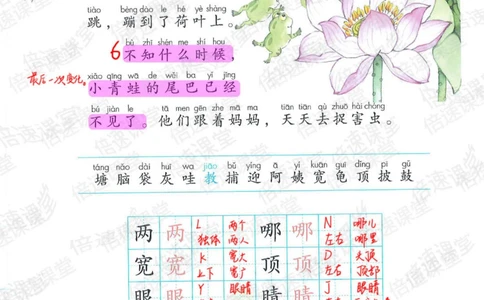 tiào bèng dào le hé yè shàng
跳，蹦到了荷叶上。
bù zhī shén me shí hou
6 不知什么时候，
最后一次变化
xiǎo qīng wā de wěi ba yǐ jīng
小青蛙的尾巴已经
bú jiàn le tā men gēn zhe mā ma tiān tiān qù zhuō hài chóng
不见了。他们跟着妈妈，天天去捉害虫。
táng nǎo dài huī wa jiāo bǔ yíng ā yí kuān guī dǐng pī gǔ
塘 脑 袋 灰 哇 教 捕 迎 阿 姨 宽 龟 顶 披 鼓
两 两 L 两个 哪 哪 N 哪儿
独体 两人 左右 哪里
宽 宽 K 宽大 顶 顶 D 头顶
上下 宽广 左右 顶部
眼 眼 Y 眼睛 睛 睛 J 眼睛